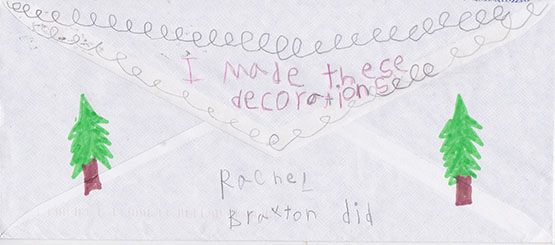 I made these
decorations
Rachel
Braxton did